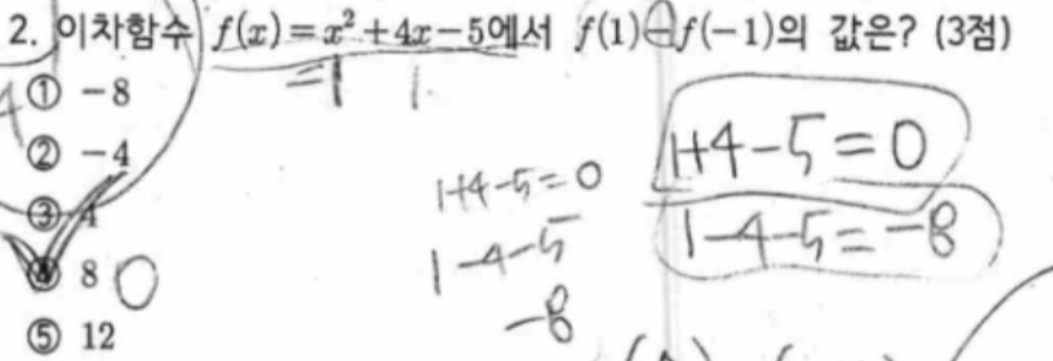 2. 이차함수 f(x)=x²+4x-5에서 f(1)-f(-1)의 값은? (3점)
=1 1
① -8
② -4
③ 4
④ 8 0
⑤ 12
1+4-5=0
1-4-5
-8
1+4-5=0
1-4-5=-8